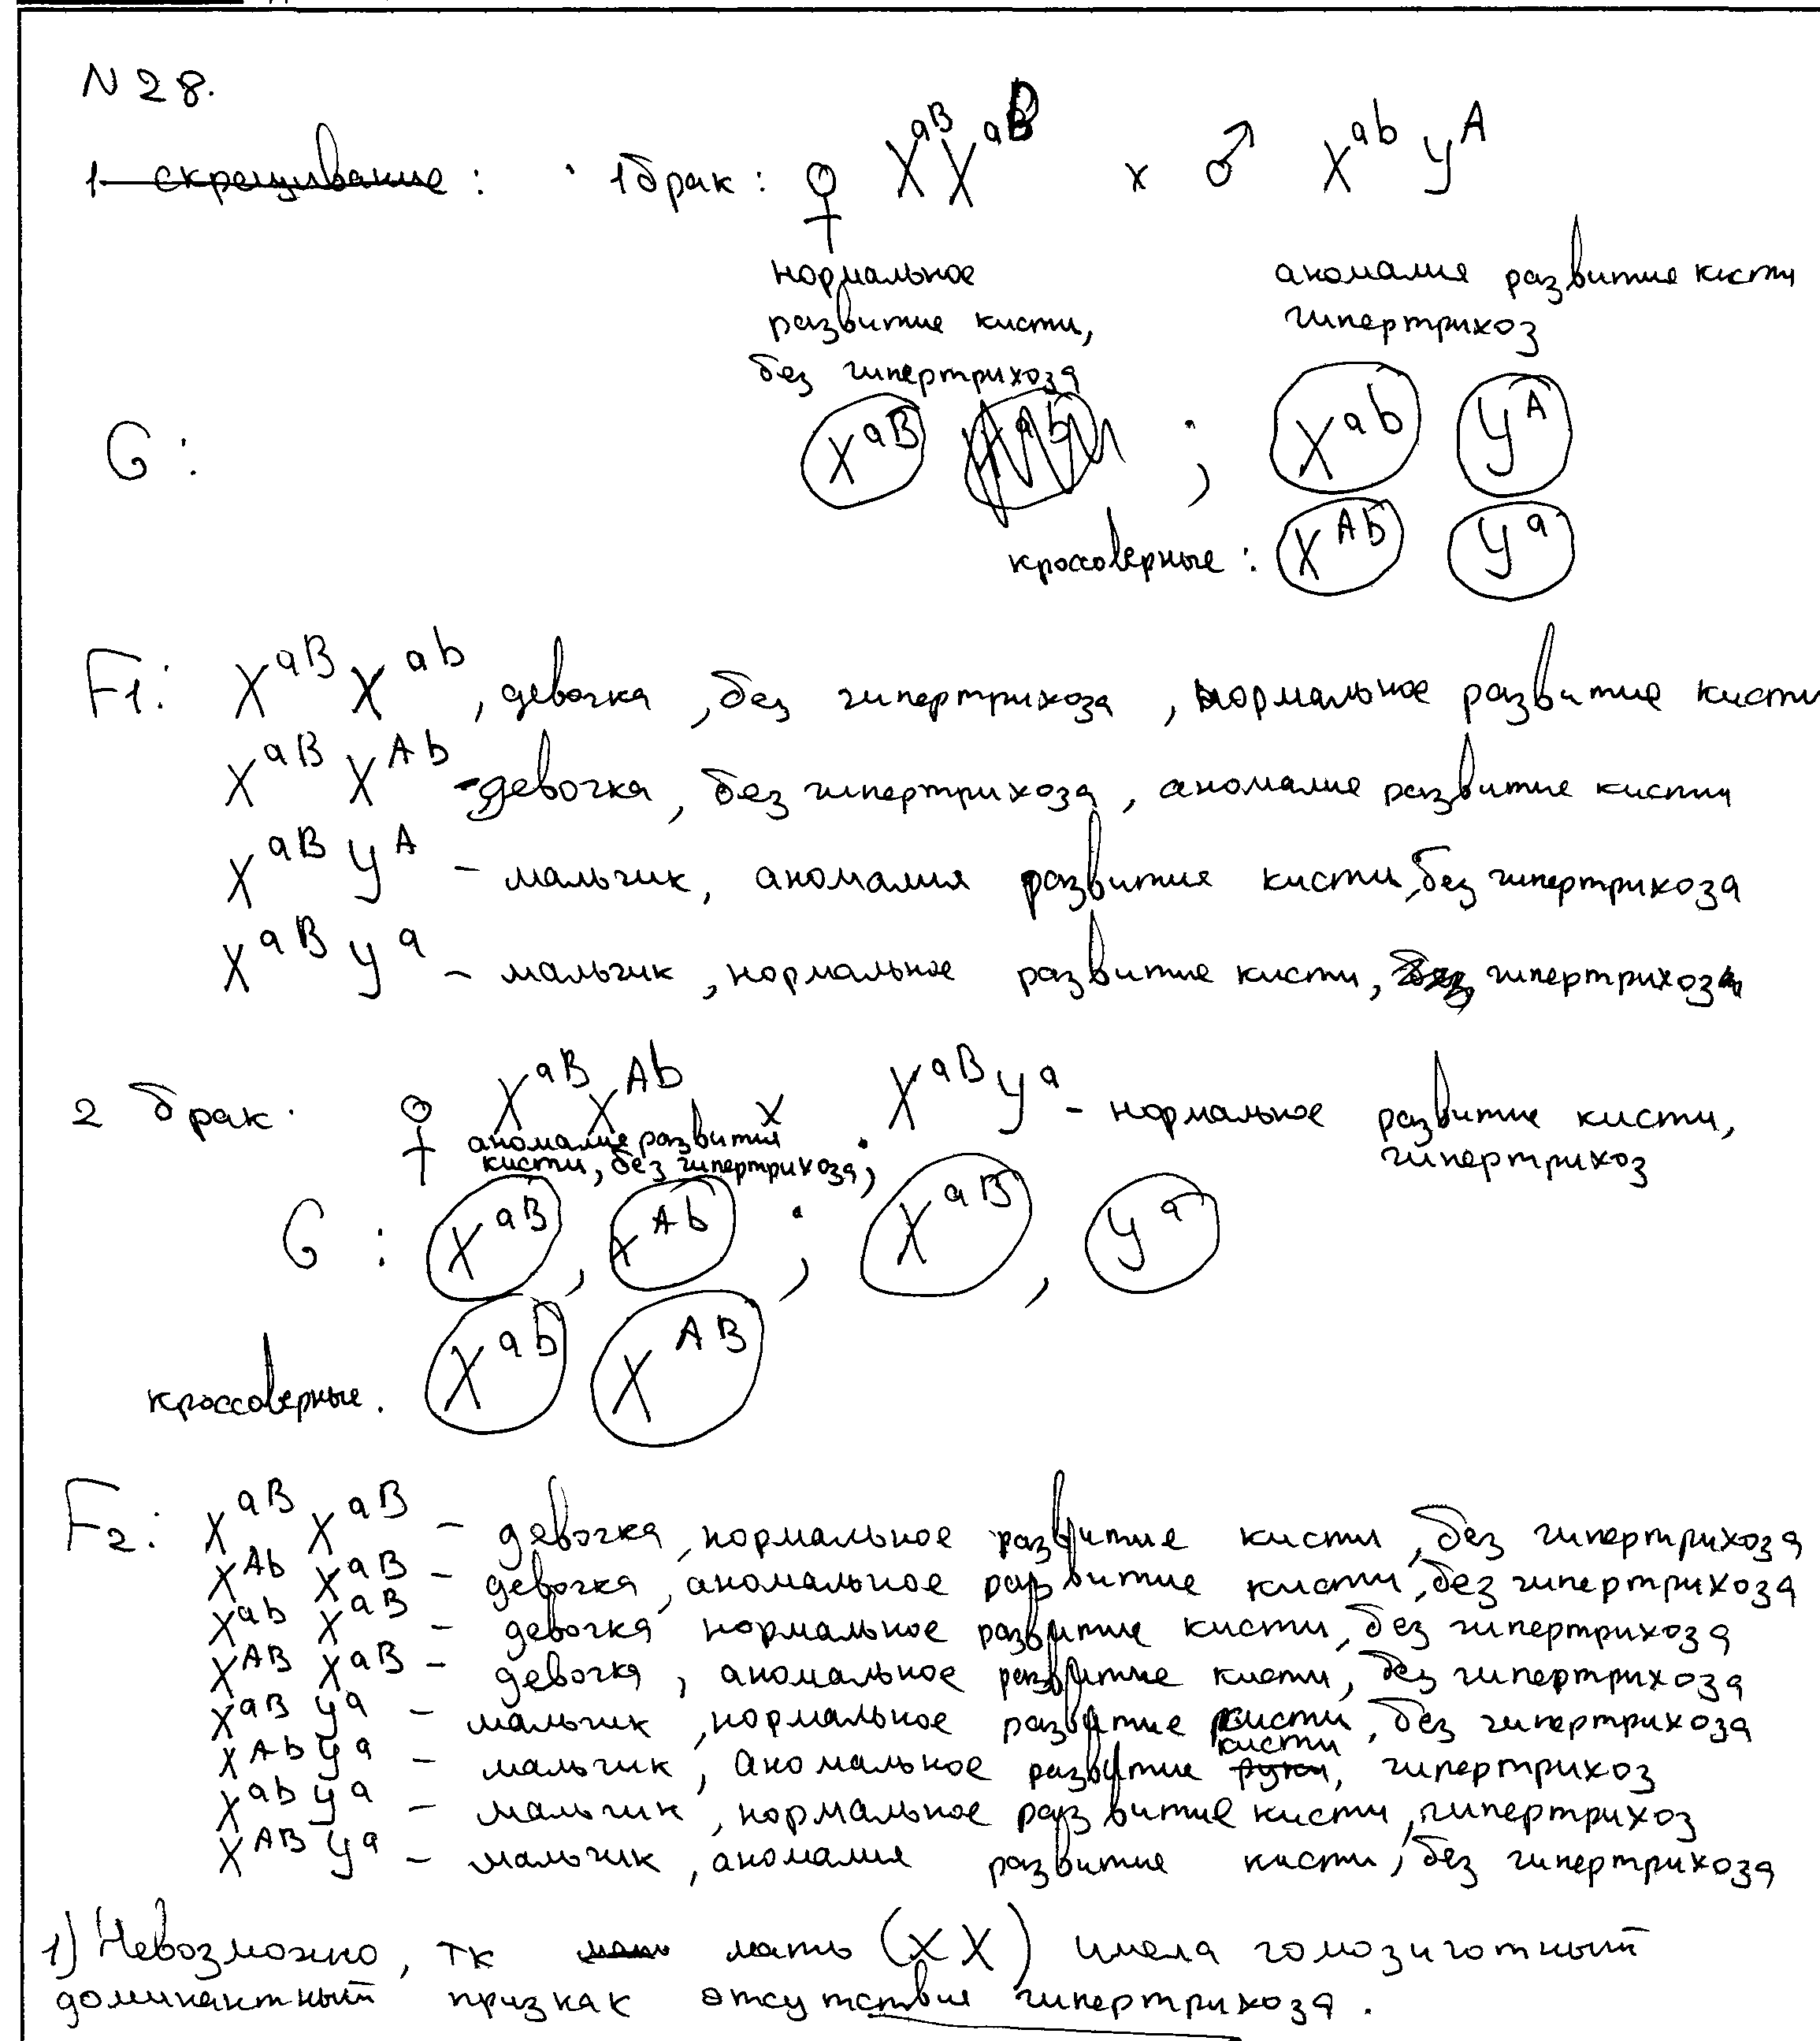 N 28.
1 скрещивание : 1 брак : ♀ X^aB X^aB x ♂ X^ab Y^A
нормальное аномалия развитие кисти
развитие кисти, гипертрихоз
без гипертрихоза
G : X^aB X^ab ; X^ab Y^A
кроссоверные : X^Ab Y^a
F1: X^aB X^ab, девочка, без гипертрихоза, нормальное развитие кисти
X^aB X^Ab - девочка, без гипертрихоза, аномалие развитие кисти
X^aB Y^A - мальчик, аномалия развития кисти, без гипертрихоза
X^aB Y^a - мальчик, нормальное развитие кисти, без гипертрихоза
2 брак. ♀ X^aB X^Ab x X^aB Y^a - нормальное развитие кисти,
аномалие развития гипертрихоз
кисти, без гипертрихоза;
G : X^aB, X^Ab ; X^aB, Y^a
кроссоверные. X^ab X^AB
F2: X^aB X^aB - девочка, нормальное развитие кисти, без гипертрихоза
X^Ab X^aB - девочка, аномальное развитие кисти, без гипертрихоза
X^ab X^aB - девочка нормальное развитие кисти, без гипертрихоза
X^AB X^aB - девочка, аномальное развитие кисти, без гипертрихоза
X^aB Y^a - мальчик, нормальное развитие кисти, без гипертрихоза
X^Ab Y^a - мальчик, аномальное развитие руки кисти, гипертрихоз
X^ab Y^a - мальчик, нормальное развитие кисти, гипертрихоз
X^AB Y^a - мальчик, аномалия развитие кисти, без гипертрихоза
1) Невозможно, тк мать мать (XX) имела гомозиготный
доминантный признак отсутствия гипертрихоза.